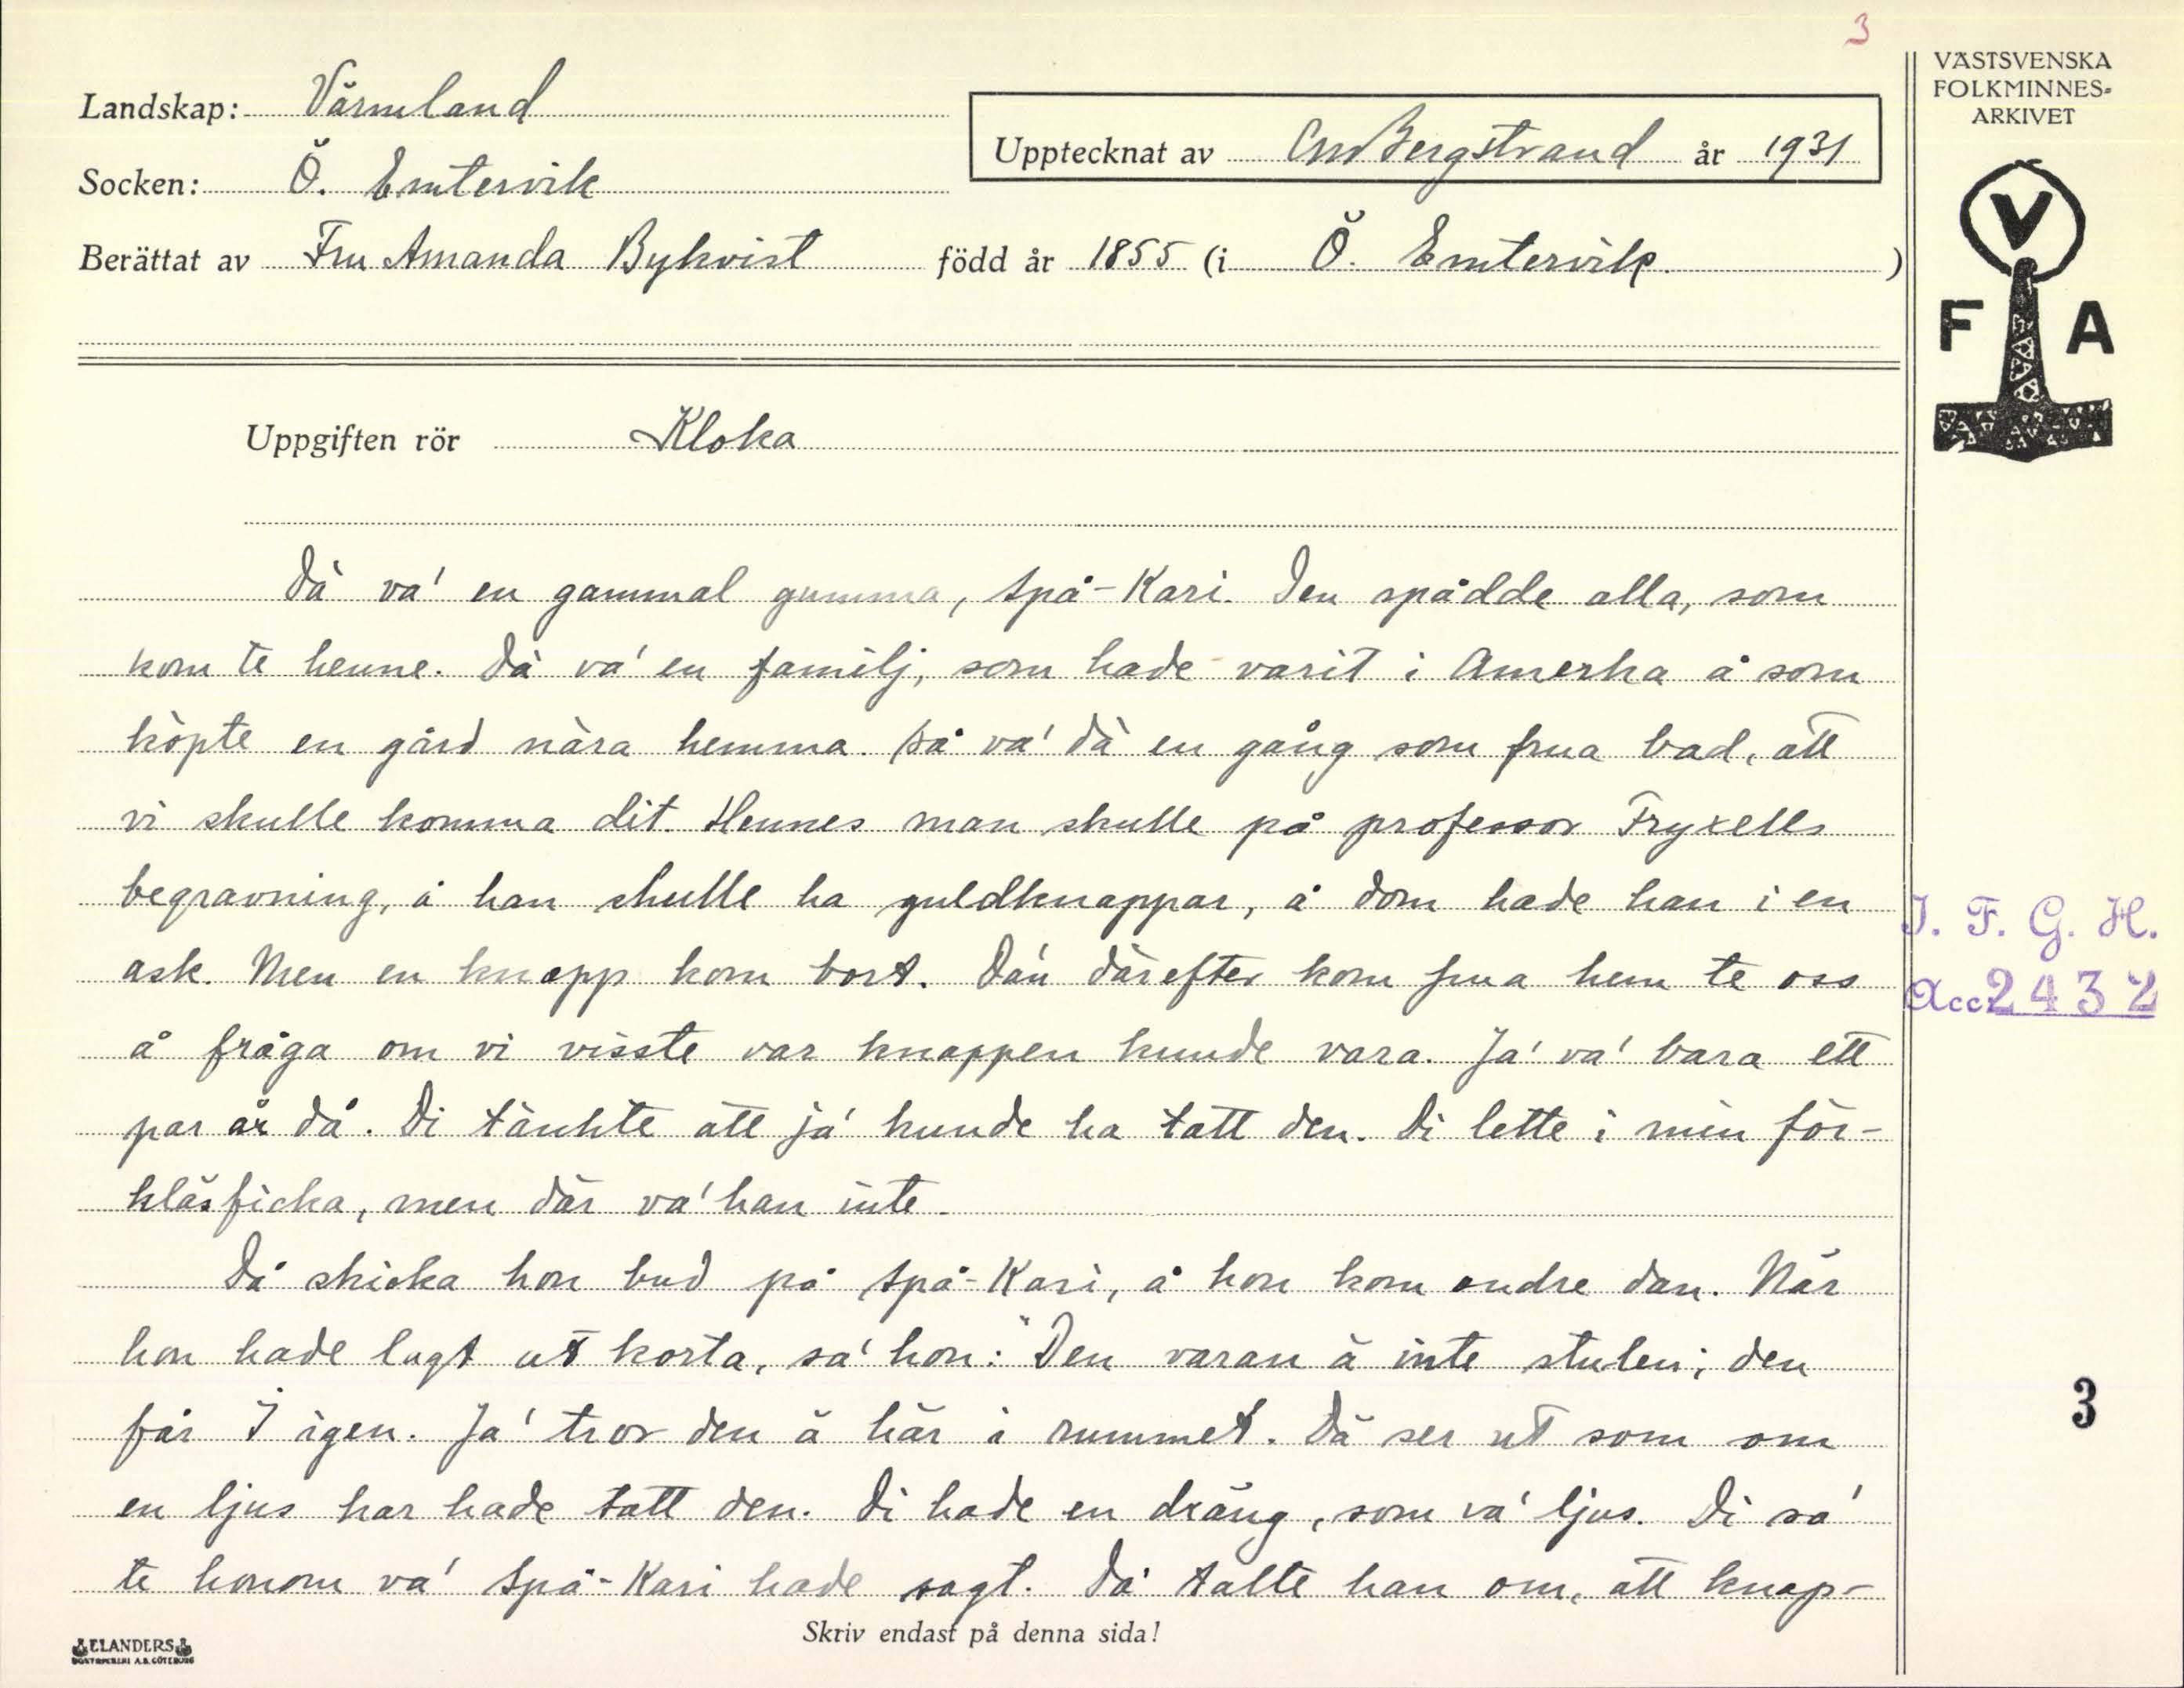 3
VÄSTSVENSKA
FOLKMINNES-
ARKIVET
Landskap: Värmland
Upptecknat av C.M. Bergstrand år 1931
Socken: Ö. Emtervik
Berättat av Fru Amanda Bykvist född år 1855 (i Ö. Emtervik.)
V
F A
Uppgiften rör Kloka
Dä va' en gammal gumma, Spå-Kari. Den spådde alla, som
kom te henne. Dä va' en familj, som hade varit i Amerka å som
köpte en gård nära hemma. Så va' dä en gång som frua bad, att
vi skulle komma dit. Hennes man skulle på professor Fryxells
begravning, å han skulle ha guldknappar, å dom hade han i en
ask. Men en knapp kom bort. Da'n därefter kom frua hem te oss
I. F. G. H.
å fråga om vi visste var knappen kunde vara. Ja' va' bara ett
Acc. 2432
par år då. Di tänkte att ja' kunde ha tatt den. Di lette i min för-
kläsficka, men där va' han inte.
Då skicka hon bud på Spå-Kari, å hon kom andre dan. När
hon hade lagt ut korta, sa' hon: "Den varan ä inte stulen; den
får I igen. Ja' tror den ä här i rummet. Dä ser ut som om
3
en ljus kar hade tatt den. Di hade en dräng, som va' ljus. Di sa'
te honom va' Spå-Kari hade sagt. Då talte han om, att knap-
Skriv endast på denna sida!
ELANDERS
BOKTRYCKERI A.B. GÖTEBORG